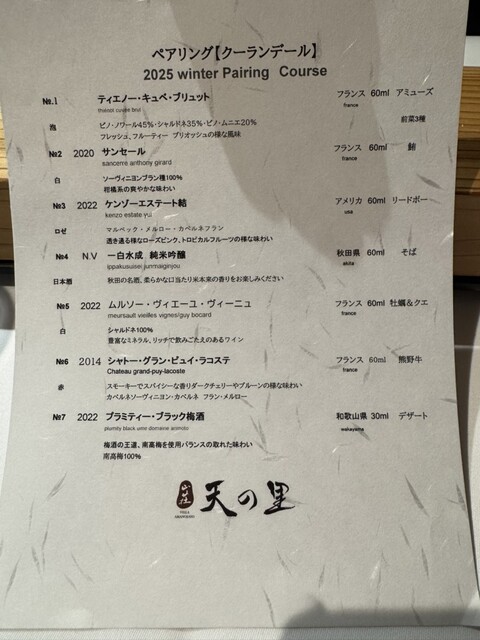 ペアリング【クーランデール】
2025 winter Pairing Course
№.1 ティエノー・キュベ・ブリュット フランス 60ml アミューズ
thienot cuvee brut france
泡 ピノ・ノワール45%・シャルドネ35%・ピノ・ムニエ20% 前菜3種
フレッシュ、フルーティー ブリオッシュの様な風味
№2 2020 サンセール フランス 60ml 鮪
sancerre anthony girard france
白 ソーヴィニヨンブラン種100%
柑橘系の爽やかな味わい
№3 2022 ケンゾーエステート結 アメリカ 60ml リードボー
kenzo estate yui usa
ロゼ マルベック・メルロー・カベルネフラン
透き通る様なローズピンク、トロピカルフルーツの様な味わい
№4 N.V 一白水成 純米吟醸 秋田県 60ml そば
ippakusuisei junmaiginjou akita
日本酒 秋田の名酒、柔らかな口当たり米本来の香りをお楽しみください
№5 2022 ムルソー・ヴィエーユ・ヴィーニュ フランス 60ml 牡蠣&クエ
meursault vieilles vignes/guy bocard france
白 シャルドネ100%
豊富なミネラル、リッチで飲みごたえのあるワイン
№6 2014 シャトー・グラン・ピュイ・ラコステ フランス 60ml 熊野牛
Chateau grand-puy-lacoste france
赤 スモーキーでスパイシーな香りダークチェリーやプルーンの様な味わい
カベルネソーヴィニヨン・カベルネ フラン・メルロー
№7 2022 プラミティー・ブラック梅酒 和歌山県 30ml デザート
plumity black ume domaine wakayama
梅酒の王道、南高梅を使用バランスの取れた味わい
南高梅100%
山荘 天の里
VILLA